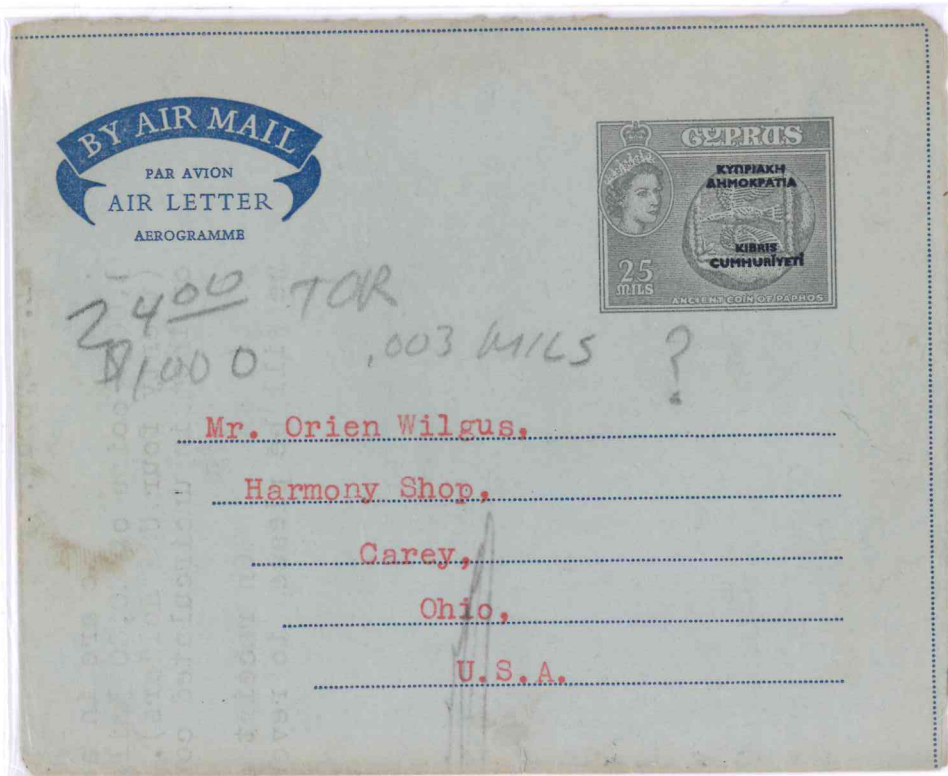 BY AIR MAIL
PAR AVION
AIR LETTER
AEROGRAMME
CYPRUS
ΚΥΠΡΙΑΚΗ
ΔΗΜΟΚΡΑΤΙΑ
KIBRIS
CUMHURİYETİ
25
MILS
ANCIENT COIN OF PAPHOS
2400 TOR
$1,000 .003 MILS ?
Mr. Orien Wilgus,
Harmony Shop,
Carey,
Ohio,
U.S.A.